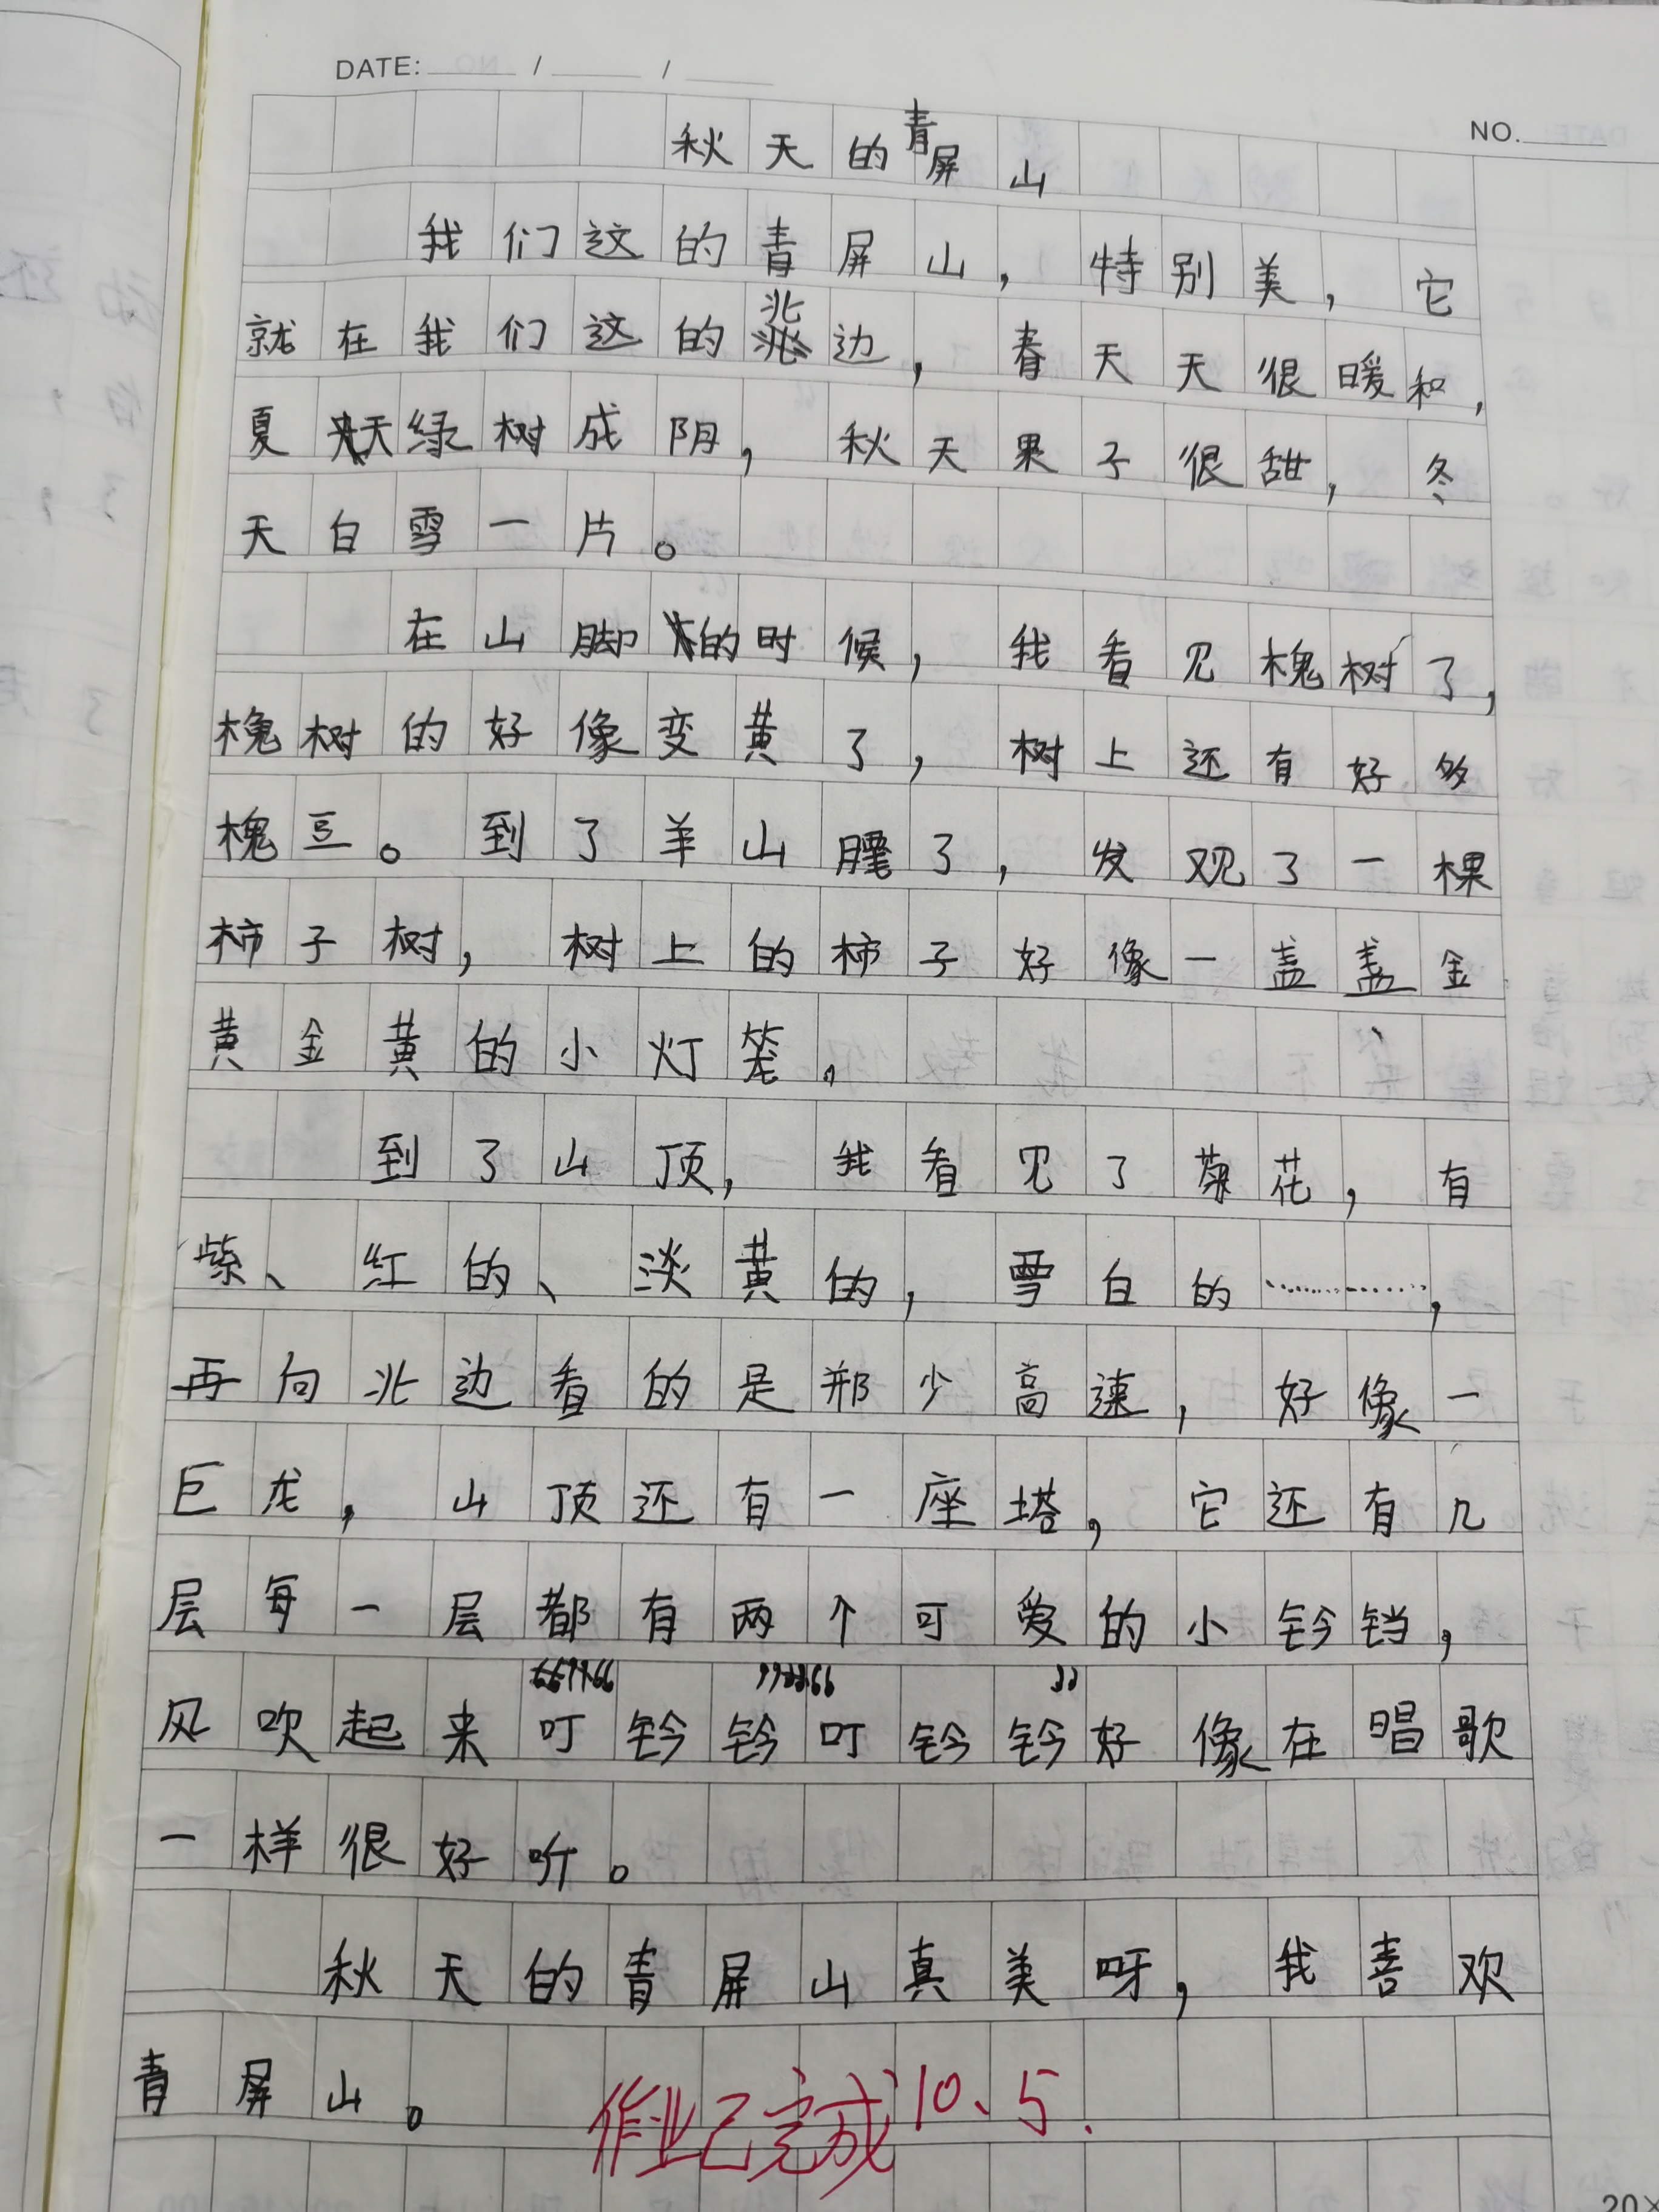 DATE: / /
NO.
秋天的青屏山
我们这的青屏山，特别美，它
就在我们这的北边，春天天很暖和，
夏天绿树成阴，秋天果子很甜，冬
天白雪一片。
在山脚的时候，我看见槐树了，
槐树的好像变黄了，树上还有好多
槐豆。到了羊山腰了，发观了一棵
柿子树，树上的柿子好像一盏盏金
黄金黄的小灯笼。
到了山顶，我看见了菊花，有
紫、红的、淡黄的，雪白的…………，
再向北边看的是郑少高速，好像一
巨龙，山顶还有一座塔，它还有几
层每一层都有两个可爱的小铃铛，
风吹起来叮铃铃叮铃铃好像在唱歌
一样很好听。
秋天的青屏山真美呀，我喜欢
青屏山。
作业已完成10、5.